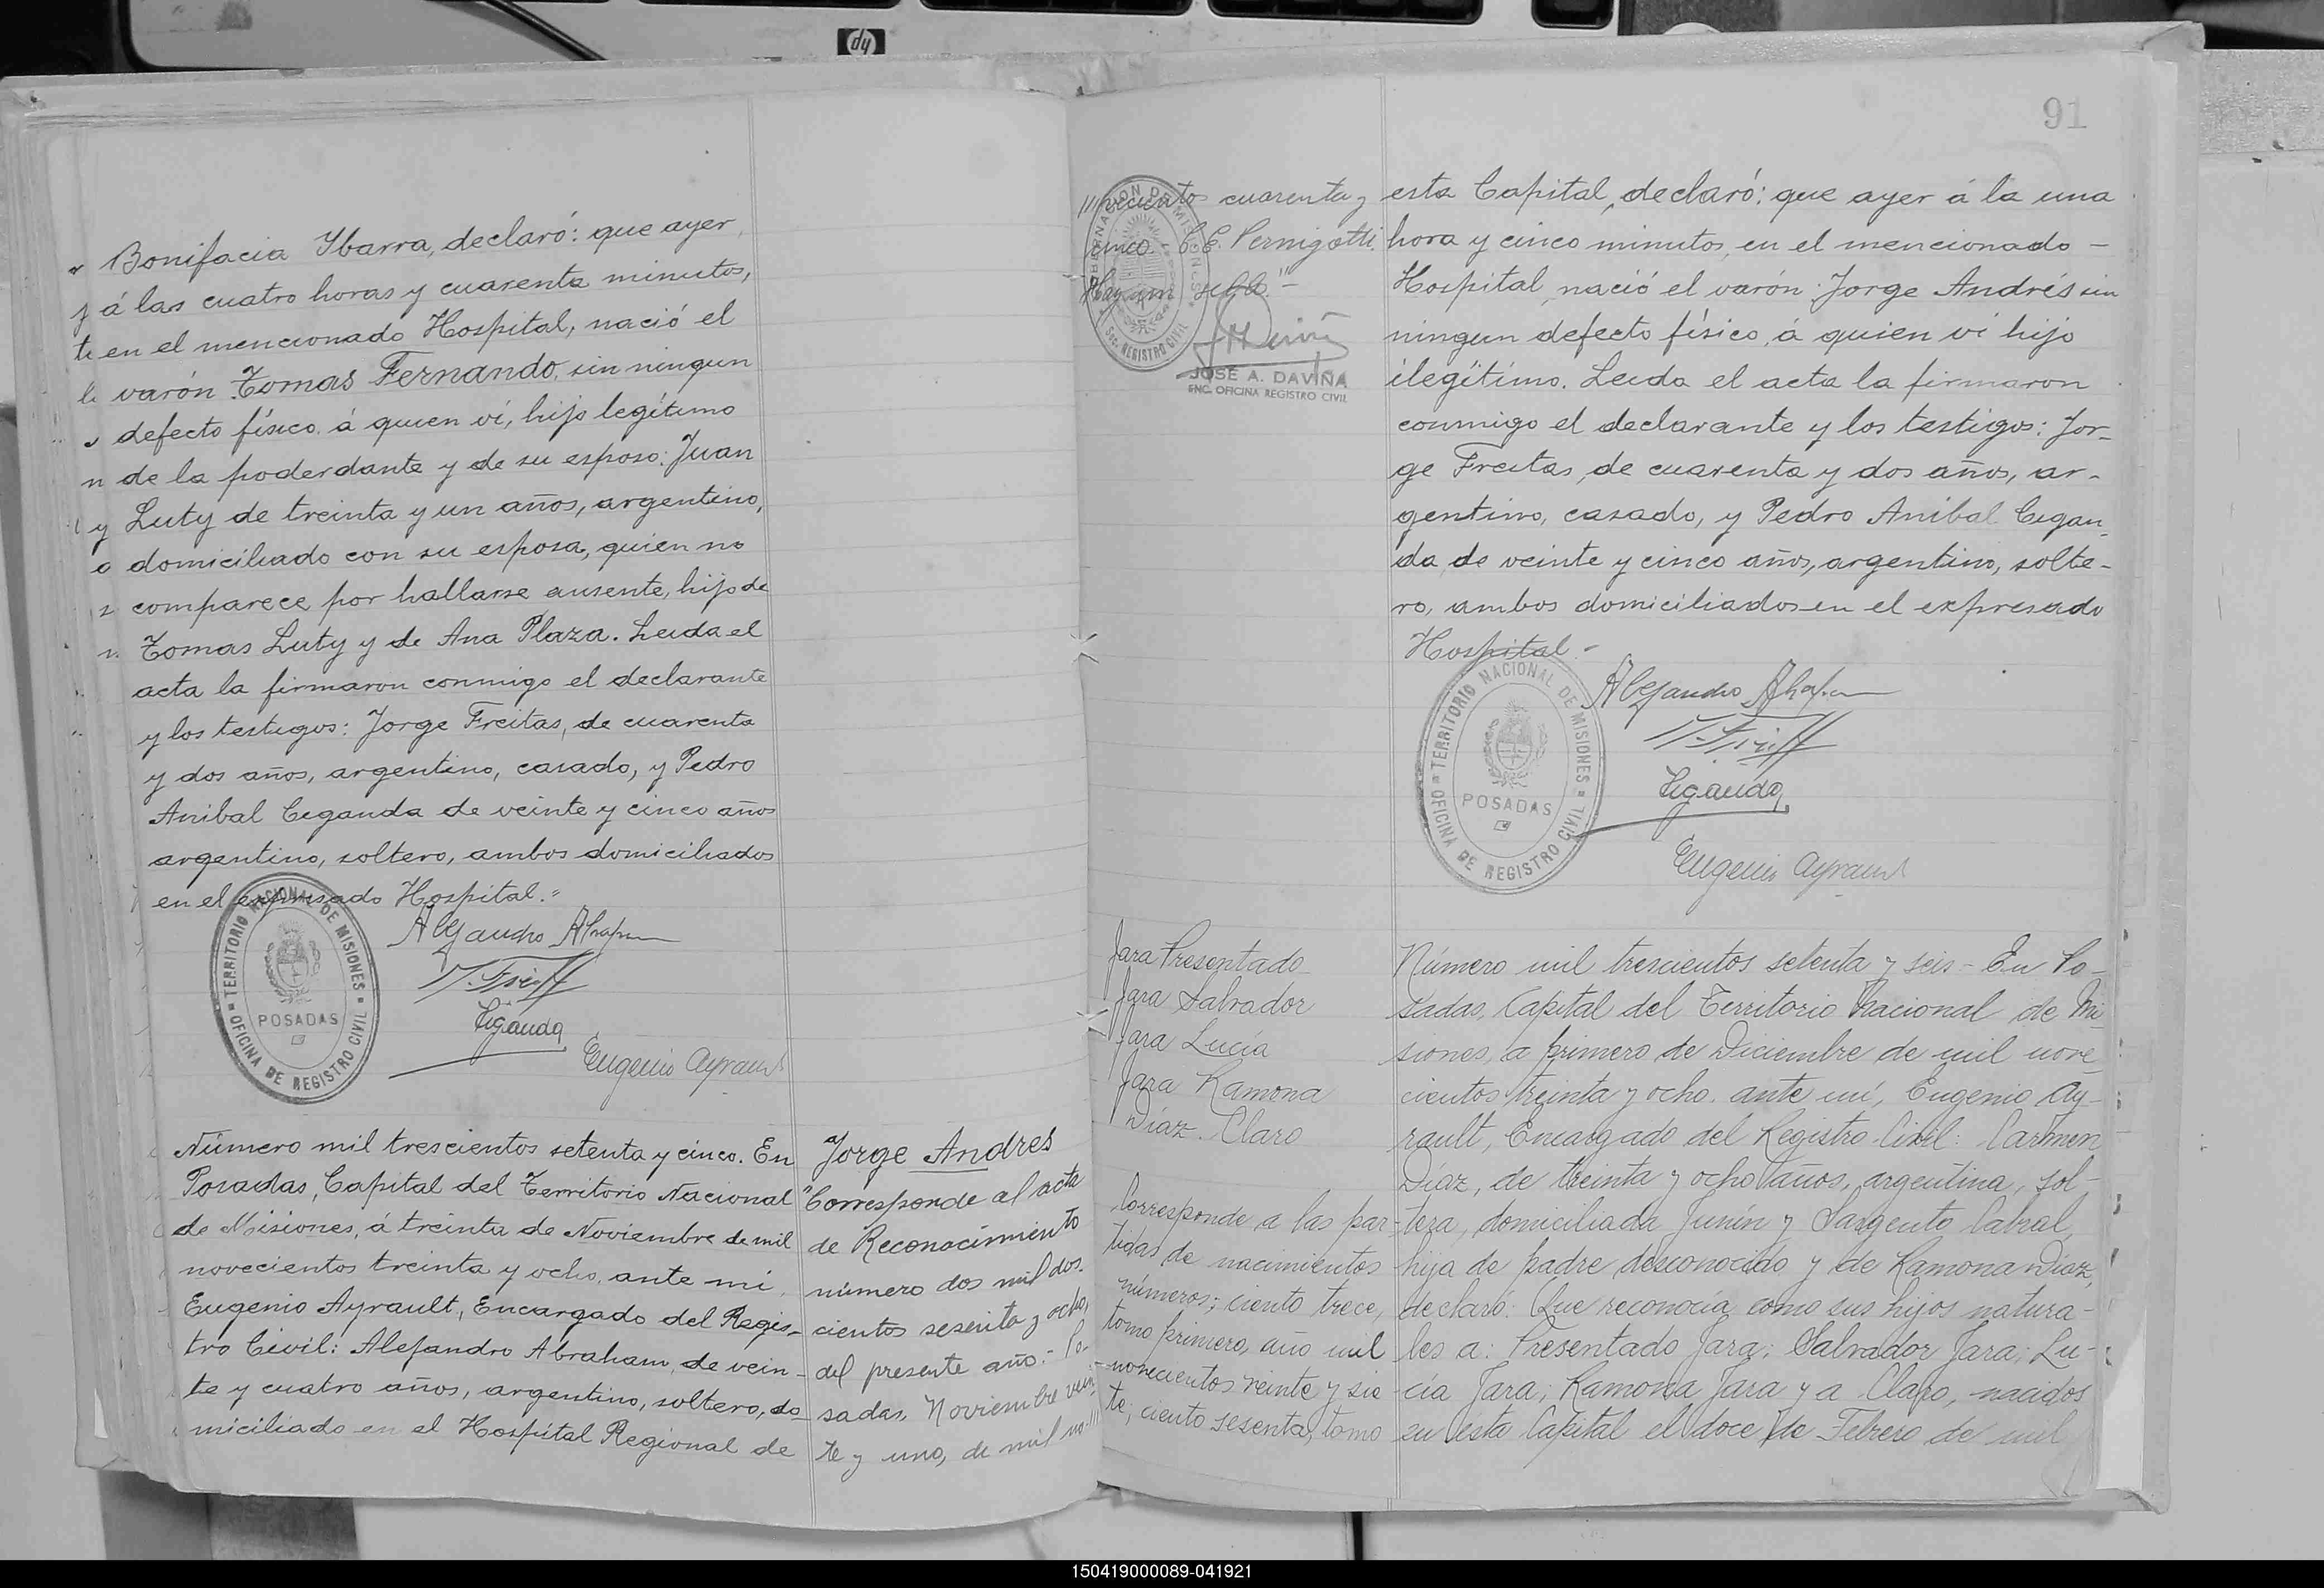 Bonifacia Ybarra, declaró: que ayer,
á las cuatro horas y cuarenta minutos,
en el mencionado Hospital, nació el
varón Tomas Fernando, sin ningun
defecto físico á quien ví, hijo legítimo
de la poderdante y de su esposo: Juan
Luty de treinta y un años, argentino,
domiciliado con su esposa, quien no
comparece por hallarse ausente, hijo de
Tomas Luty y de Ana Plaza. Leida el
acta la firmaron conmigo el declarante
y los testigos: Jorge Freitas, de cuarenta
y dos años, argentino, casado, y Pedro
Anibal Ciganda de veinte y cinco años
argentino, soltero, ambos domiciliados
en el expresado Hospital."
TERRITORIO NACIONAL DE MISIONES
POSADAS
OFICINA DE REGISTRO CIVIL
Alejandro Abraham
Ciganda
Eugenio Ayrault
Número mil trescientos setenta y cinco. En
Posadas, Capital del Territorio Nacional
de Misiones, á treinta de Noviembre de mil
novecientos treinta y ocho, ante mi,
Eugenio Ayrault, Encargado del Regis-
tro Civil: Alejandro Abraham, de vein-
te y cuatro años, argentino, soltero, do-
miciliado en el Hospital Regional de
Jorge Andres
"Corresponde al acta
de Reconocimiento
número dos mil dos-
cientos sesenta y ocho,
del presente año.- Po-
sadas, Noviembre vein-
te y uno, de mil no-///
91
///vecientos cuarenta y
cinco. C.E. Pernigotti.
Hay un sello."-
GOBERNACION DE MISIONES
Sec. REGISTRO CIVIL
JOSE A. DAVIÑA
ENC. OFICINA REGISTRO CIVIL
esta Capital, declaró: que ayer á la una
hora y cinco minutos, en el mencionado -
Hospital, nació el varón Jorge Andrés sin
ningun defecto físico, á quien ví hijo
ilegítimo. Leida el acta la firmaron
conmigo el declarante y los testigos: Jor-
ge Freitas, de cuarenta y dos años, ar-
gentino, casado, y Pedro Anibal Cigan-
da, de veinte y cinco años, argentino, solte-
ro, ambos domiciliados en el expresado
Hospital.-
TERRITORIO NACIONAL DE MISIONES
POSADAS
OFICINA DE REGISTRO CIVIL
Alejandro Abraham
Ciganda
Eugenio Ayrault
Jara Presentado
Jara Salvador
Jara Lucía
Jara Ramona
Díaz Claro
Corresponde a las par-
tidas de nacimientos
números; ciento trece,
tomo primero, año mil
novecientos veinte y sie-
te; ciento sesenta, tomo
Número mil trescientos setenta y seis - En Po-
sadas, Capital del Territorio Nacional de Mi-
siones, a primero de Diciembre de mil nove-
cientos treinta y ocho. ante mí, Eugenio Ay-
rault, Encargado del Registro Civil: Carmen
Díaz, de treinta y ocho años, argentina, sol-
tera, domiciliada Junín y Sargento Cabral,
hija de padre desconocido y de Ramona Díaz,
declaró: Que reconocía como sus hijos natura-
les a: Presentado Jara; Salvador Jara; Lu-
cía Jara; Ramona Jara y a Claro, nacidos
en esta Capital el doce de Febrero de mil
150419000089-041921